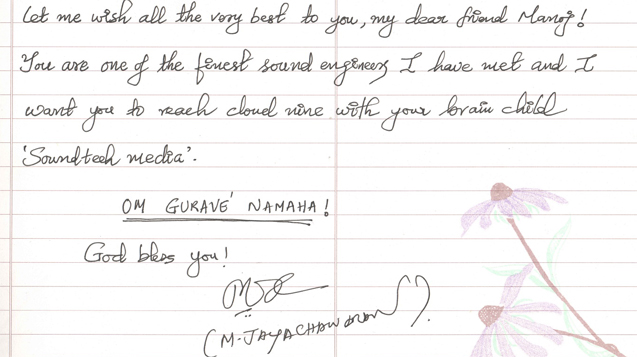 Let me wish all the very best to you, my dear friend Manoj!
You are one of the finest sound engineers I have met and I
want you to reach cloud nine with your brain child
'Soundtech media'.
OM GURAVE' NAMAHA!
God bless you!
(M. JAYACHANDRAN)